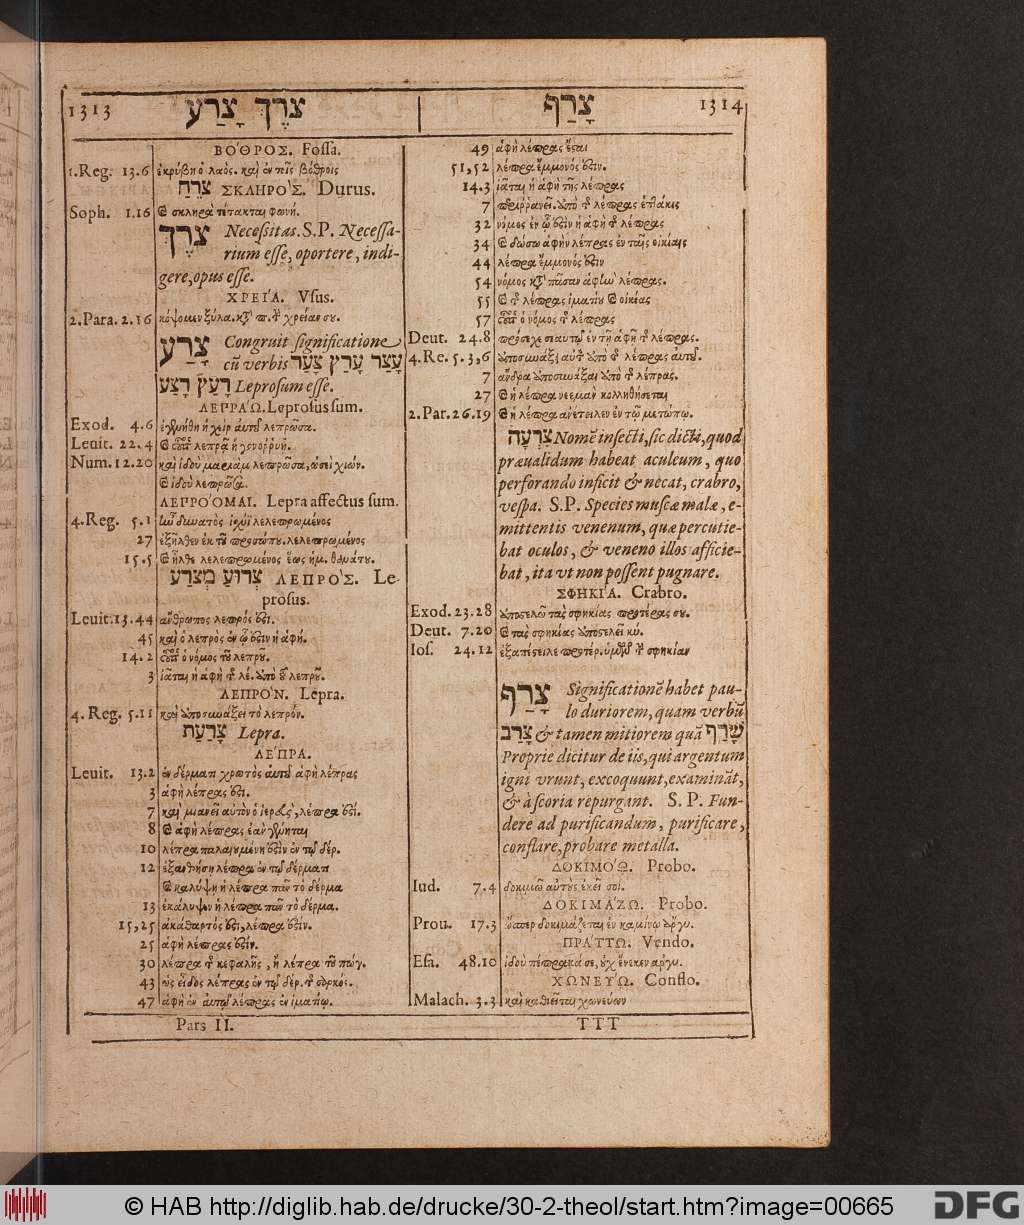 1313 צרֶךְ צָרַע
צָרַף 1314
ΒΌΘΡΟΣ. Fossa.
1.Reg. 13.6 ἐκρύβη ὁ λαὸς. καὶ ἐν τοῖς βόθροις
צרֶח ΣΚΛΗΡΟ΄Σ. Durus.
Soph. 1.16 σκληρὰ τέτακται φωνή.
צרֶךְ Necessitas. S.P. Necessa-
rium esse, oportere, indi-
gere, opus esse.
ΧΡΕΙ΄Α. Vsus.
2.Para. 2.16 κόψομεν ξύλα. χρείαν σου.
צָרַע Congruit significatione
cũ verbis עָצַר עָרַץ צָעַר
רָעַץ רָצַע Leprosum esse.
ΛΕΓΡΑ΄Ω. Leprosus sum.
Exod. 4.6 ἐγενήθη ἡ χεὶρ αὐτοῦ λεπρῶσα.
Leuit. 22.4 λεπρᾷ ἢ γονορρυὴ.
Num. 12.20 καὶ ἰδοὺ μαριὰμ λεπρῶσα, ὡσεὶ χιών.
ἰδοὺ λεπρῶσα.
ΛΕΓΡΟ΄ΟΜΑΙ. Lepra affectus sum.
4.Reg. 5.1 δυνατὸς ἰσχύϊ λελεπρωμένος
27 ἐξῆλθεν ἐκ τοῦ προσώπου. λελεπρωμένος
15.5 ἦλθε λελεπρωμένος ἕως ἡμ. θανάτου.
צְרוּעַ מְצֹרַע ΛΕΠΡΟ΄Σ. Le-
prosus.
Leuit. 13.44 ἄνθρωπος λεπρός ἐστι.
45 καὶ ὁ λεπρὸς ἐν ᾧ ἐστιν ἡ ἁφή.
14.2 οὗτος ὁ νόμος τοῦ λεπροῦ.
3 ἰᾶται ἡ ἁφὴ τῆς λέ. ἀπὸ τοῦ λεπροῦ.
ΛΕΠΡΟ΄Ν. Lepra.
4. Reg. 5.11 καὶ ἀποσυνάξει τὸ λεπρόν.
צָרַעַת Lepra.
ΛΕ΄ΠΡΑ.
Leuit. 13.2 ἐν δέρματι χρωτὸς αὐτοῦ ἁφὴ λέπρας
3 ἁφὴ λέπρας ἐστί.
7 καὶ μιανεῖ αὐτὸν ὁ ἱερεὺς, λέπρα ἐστί.
8 ἁφὴ λέπρας ἐὰν γένηται
10 λέπρα παλαιουμένη ἐστὶν ἐν τῷ δέρ.
12 ἐξανθήσῃ λέπρα ἐν τῷ δέρματι
καλύψῃ ἡ λέπρα πᾶν τὸ δέρμα
13 ἐκάλυψεν ἡ λέπρα πᾶν τὸ δέρμα.
15,25 ἀκάθαρτός ἐστι, λέπρα ἐστίν.
25 ἁφὴ λέπρας ἐστίν.
30 λέπρα τῆς κεφαλῆς, ἢ λέπρα τοῦ πώγ.
43 ὡς εἶδος λέπρας ἐν τῷ δέρ. τῆς σαρκός.
47 ἁφὴ ἐν αὐτῷ λέπρας ἐν ἱματίῳ.
Pars II.
49 ἁφὴ λέπρας ἔσται
51,52 λέπρα ἔμμονός ἐστιν.
14.3 ἰᾶται ἡ ἁφὴ τῆς λέπρας
7 περιρρανεῖ. ἀπὸ τῆς λέπρας ἑπτάκις
32 νόμος ἐν ᾧ ἐστὶν ἡ ἁφὴ τῆς λέπρας
34 δώσω ἁφὴν λέπρας ἐν ταῖς οἰκίαις
44 λέπρα ἔμμονός ἐστιν
54 νόμος κατὰ πᾶσαν ἁφὴν λέπρας.
55 τῆς λέπρας ἱματίου οἰκίας
57 οὗτος ὁ νόμος τῆς λέπρας
Deut. 24.8 πρόσεχε σεαυτῷ ἐν τῇ ἁφῇ τῆς λέπρας.
4.Re. 5.3,6 ἀποσυνάξει αὐτὸν ἀπὸ τῆς λέπρας αὐτοῦ.
7 ἄνδρα ἀποσυνάξαι ἀπὸ τῆς λέπρας.
27 ἡ λέπρα νεεμὰν κολληθήσεται
2.Par. 26.19 ἡ λέπρα ἀνέτειλεν ἐν τῷ μετώπῳ.
צִרְעָה Nomẽ insecti, sic dicti, quod
præualidum habeat aculeum, quo
perforando inficit & necat, crabro,
vespa. S.P. Species muscæ malæ, e-
mittentis venenum, quæ percutie-
bat oculos, & veneno illos afficie-
bat, ita vt non possent pugnare.
ΣΦΗΚΙ΄Α. Crabro.
Exod. 23.28 ἀποστελῶ τὰς σφηκίας προτέρας σου.
Deut. 7.20 τὰς σφηκίας ἀποστελεῖ κύ.
Ios. 24.12 ἐξαπέστειλε προτέρ. ὑμῶν τὴν σφηκίαν
צָרַף Significationẽ habet pau-
lo duriorem, quam verbũ
צרב & tamen mitiorem quã שָׂרַף
Proprie dicitur de iis, qui argentum
igni vrunt, excoquunt, examinãt,
& à scoria repurgant. S.P. Fun-
dere ad purificandum, purificare,
conflare, probare metalla.
ΔΟΚΙΜΟ΄Ω. Probo.
Iud. 7.4 δοκιμῶ αὐτοὺς ἐκεῖ σοί.
ΔΟΚΙΜΑ΄ΖΩ. Probo.
Prou. 17.3 ὥσπερ δοκιμάζεται ἐν καμίνῳ ἄργυ.
ΠΡΑ΄ΤΤΩ. Vendo.
Esa. 48.10 ἰδοὺ πέπρακά σε, οὐχ ἕνεκεν ἀργυ.
ΧΩΝΕΥ΄Ω. Conflo.
Malach. 3.3 καὶ καθιεῖται χωνεύων
TTT
© HAB http://diglib.hab.de/drucke/30-2-theol/start.htm?image=00665
DFG